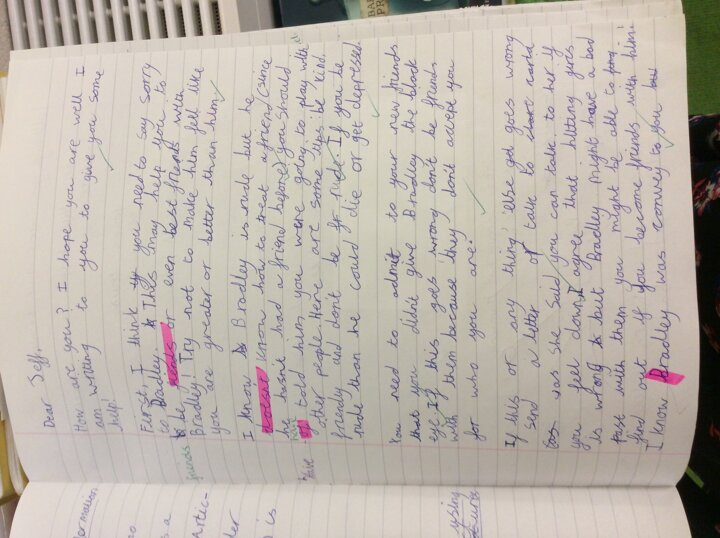 Dear Jeff,
How are you? I hope you are well I
am writing to you to give you some
help!
First, I think you need to say sorry
to Bradley. This may help you to
be friends or even best friends with
Bradley! Try not to make him fell like
you are greater or better than him
I know Bradley is rude but he
know how to treat a friend (since
he hasn't had a friend before) you should
told him you were going to play with
other people. Here are some tips: be kind
friendly and don't be rude. If you be
rude than he could die or get depressed
You need to admit to your new friends
that you didn't give Bradley the black
eye. If this goes wrong don't be friends
with them because they don't accept you
for who you are.
If this or any thing else goes wrong
send a letter or talk to
was she said you can talk to her if
you fell down. I agree that hitting girls
is wrong but Bradley might have a bad
past with them you might be able to
find out if you become friends with him!
I know Bradley was to you but
friends
ormation
s a
Artic-
der
is
ysing